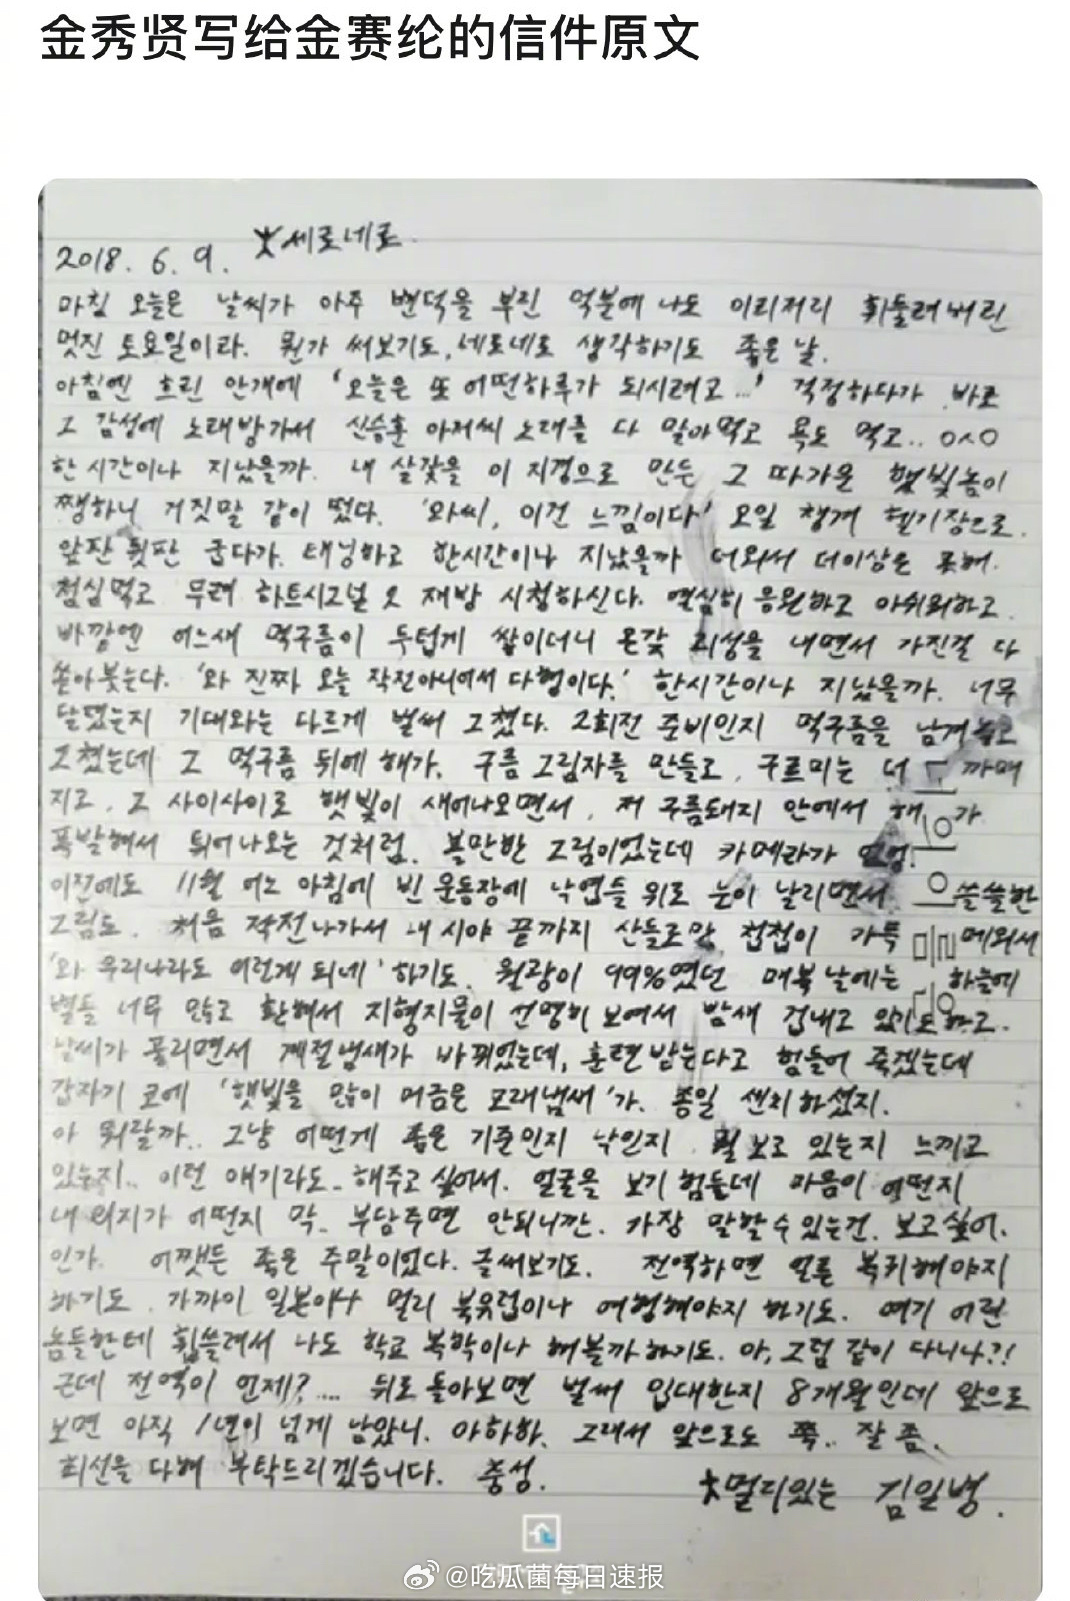 金秀贤写给金赛纶的信件原文
2018. 6. 9. 세로네로.
마침 오늘은 날씨가 아주 변덕을 부린 덕분에 나도 이리저리 휘둘려버린
멋진 토요일이라. 뭔가 써보기도, 세로네로 생각하기도 좋은 날.
아침엔 흐린 안개에 '오늘은 또 어떤하루가 되시려고...' 걱정하다가 바로
그 감성에 노래방가서 신승훈 아저씨 노래를 다 말아먹고 욕도 먹고.. ㅇㅅㅇ
한시간이나 지났을까. 내 살갗을 이 지경으로 만든 그 따가운 햇빛놈이
쨍하니 거짓말 같이 떴다. '와씨, 이건 느낌이다' 오일 챙겨 헬기장으로.
앞판 뒷판 굽다가. 태닝하고 한시간이나 지났을까 더워서 더이상은 못해.
점심먹고 무려 하트시그널2 재방 시청하신다. 열심히 응원하고 아쉬워하고.
바깥엔 어느새 먹구름이 두텁게 쌓이더니 온갖 괴성을 내면서 가진걸 다
쏟아붓는다. '와 진짜 오늘 작전아니어서 다행이다.' 한시간이나 지났을까. 너무
달렸는지 기대와는 다르게 벌써 그쳤다. 2회전 준비인지 먹구름을 남겨놓고
그쳤는데 그 먹구름 뒤에 해가. 구름 그림자를 만들고, 구르미는 더 까매
지고, 그 사이사이로 햇빛이 새어나오면서, 저 구름돼지 안에서 해가
폭발해서 튀어나오는 것처럼. 볼만한 그림이었는데 카메라가 없엉.
이전에도 11월 어느 아침에 빈 운동장에 낙엽들 위로 눈이 날리면서 쓸쓸한
그림도. 처음 작전나가서 내 시야 끝까지 산들로만 첩첩이 가득 메워서
'와 우리나라도 이런게 되네' 하기도. 월광이 99%였던 매복날에는 하늘에
별들 너무 많고 환해서 지형지물이 선명히 보여서 밤새 겁내고 있기도하고.
날씨가 풀리면서 계절냄새가 바뀌었는데, 훈련받는다고 힘들어 죽겠는데
갑자기 코에 '햇빛을 많이 머금은 모래냄새'가. 종일 센치하셨지.
아 뭐랄까.. 그냥 어떤게 좋은 기준인지 낙인지. 뭘 보고 있는지 느끼고
있는지.. 이런 얘기라도.. 해주고싶어서. 얼굴을 보기 힘들데 마음이 어떤지
내 의지가 어떤지 막.. 부담주면 안되니깐. 가장 말할수있는건. 보고싶어.
인가. 어쨌든 좋은 주말이었다. 글써보기도. 전역하면 얼른 복귀해야지
하기도. 가까이 일본이나 멀리 북유럽이나 여행해야지 하기도. 여기 어린
놈들한테 휩쓸려서 나도 학교 복학이나 해볼까하기도. 아, 그럼 같이 다니나?!
근데 전역이 언제?.... 뒤로 돌아보면 벌써 입대한지 8개월인데 앞으로
보면 아직 1년이 넘게 남았니. 아하하. 그래서 앞으로도 쭉.. 잘 좀.
최선을 다해 부탁드리겠습니다. 충성.
멀리있는 김일병.
@吃瓜菌每日速报